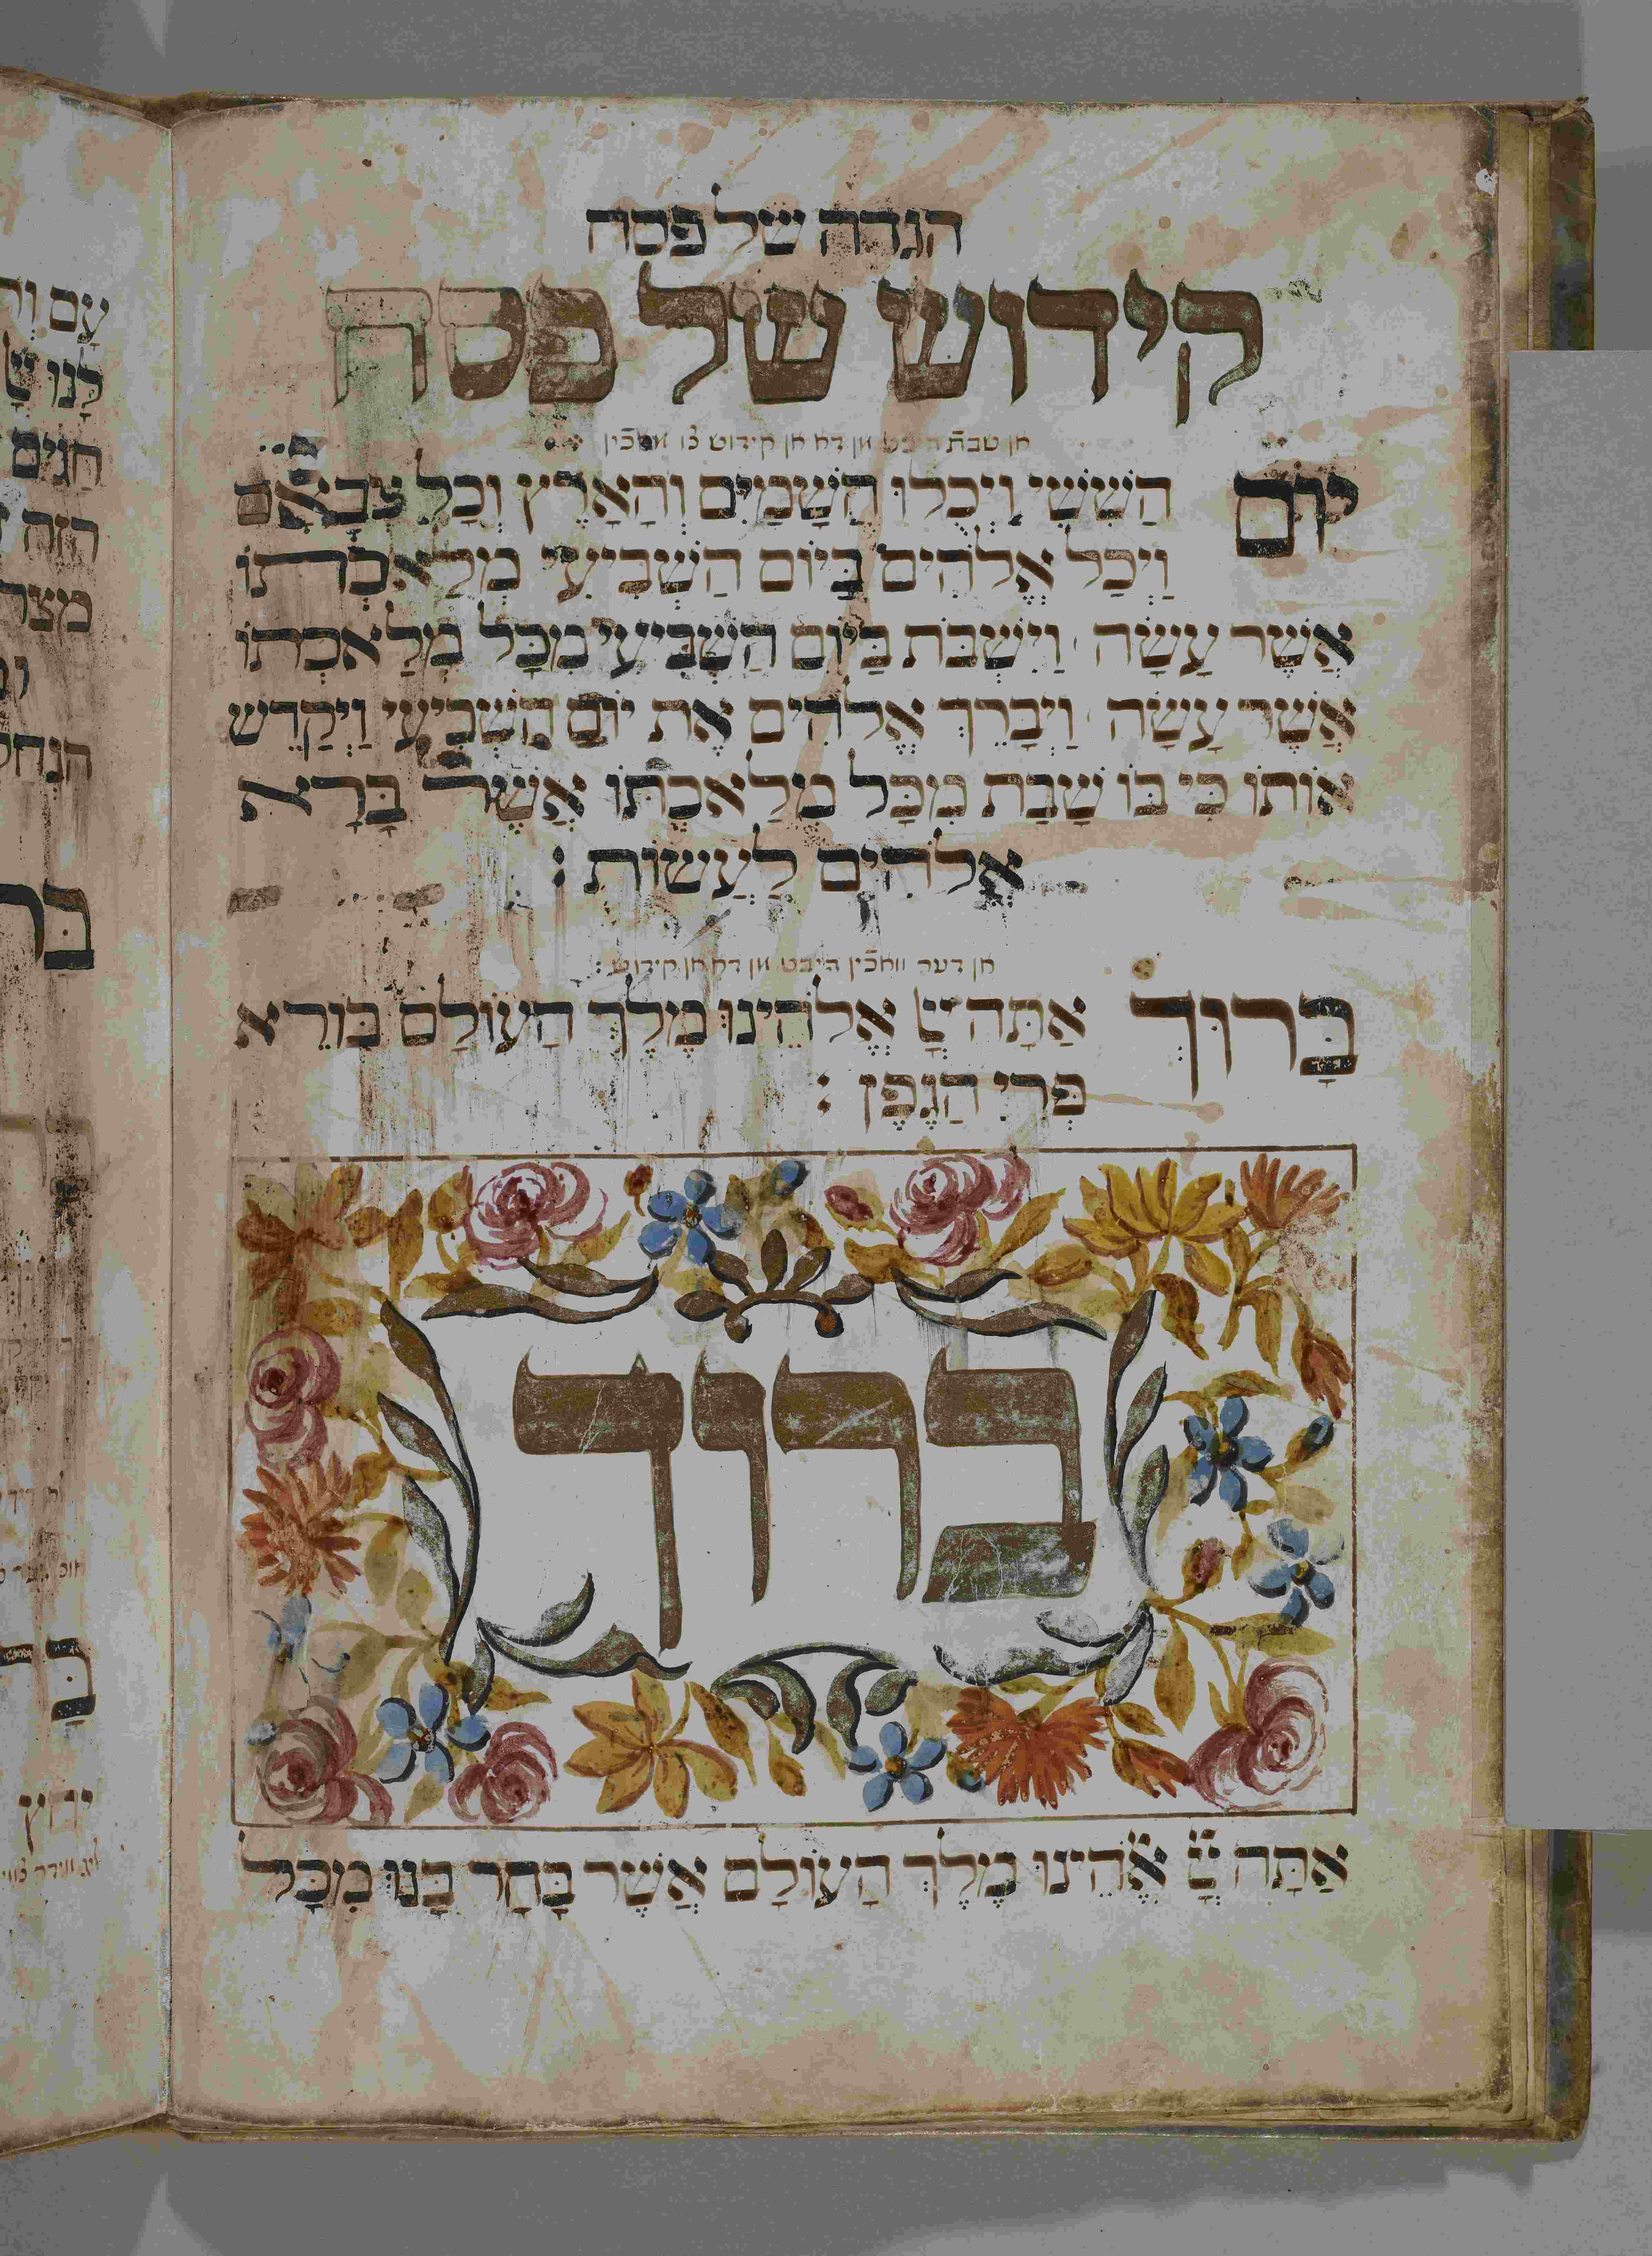 הגדה של פסח
קידוש של פסח
הײבט מן דא מן קידוש
יוֹם הַשִּׁשִּׁי וַיְכֻלּוּ הַשָּׁמַיִם וְהָאָרֶץ וְכָל צְבָאָם
וַיְכַל אֱלֹהִים בַּיּוֹם הַשְּׁבִיעִי מְלַאכְתּוֹ
אֲשֶׁר עָשָׂה ׳ וַיִּשְׁבֹּת בַּיּוֹם הַשְּׁבִיעִי מִכָּל מְלַאכְתּוֹ
אֲשֶׁר עָשָׂה ׳ וַיְבָרֵךְ אֱלֹהִים אֶת יוֹם הַשְּׁבִיעִי וַיְקַדֵּשׁ
אוֹתוֹ כִּי בּוֹ שָׁבַת מִכָּל מְלַאכְתּוֹ אֲשֶׁר בָּרָא
אֱלֹהִים לַעֲשׂוֹת :
אן דער וואכֿין הײבט מן דא אן קידוש :
בָּרוּךְ אַתָּה יְיָ אֱלֹהֵינוּ מֶלֶךְ הָעוֹלָם בּוֹרֵא
פְּרִי הַגֶּפֶן :
ברוך
אַתָּה יְיָ אֱֹהֵינוּ מֶלֶךְ הָעוֹלָם אֲשֶׁר בָּחַר בָּנוּ מִכָּל
עָם
לָנוּ
חַגִּים
הזה